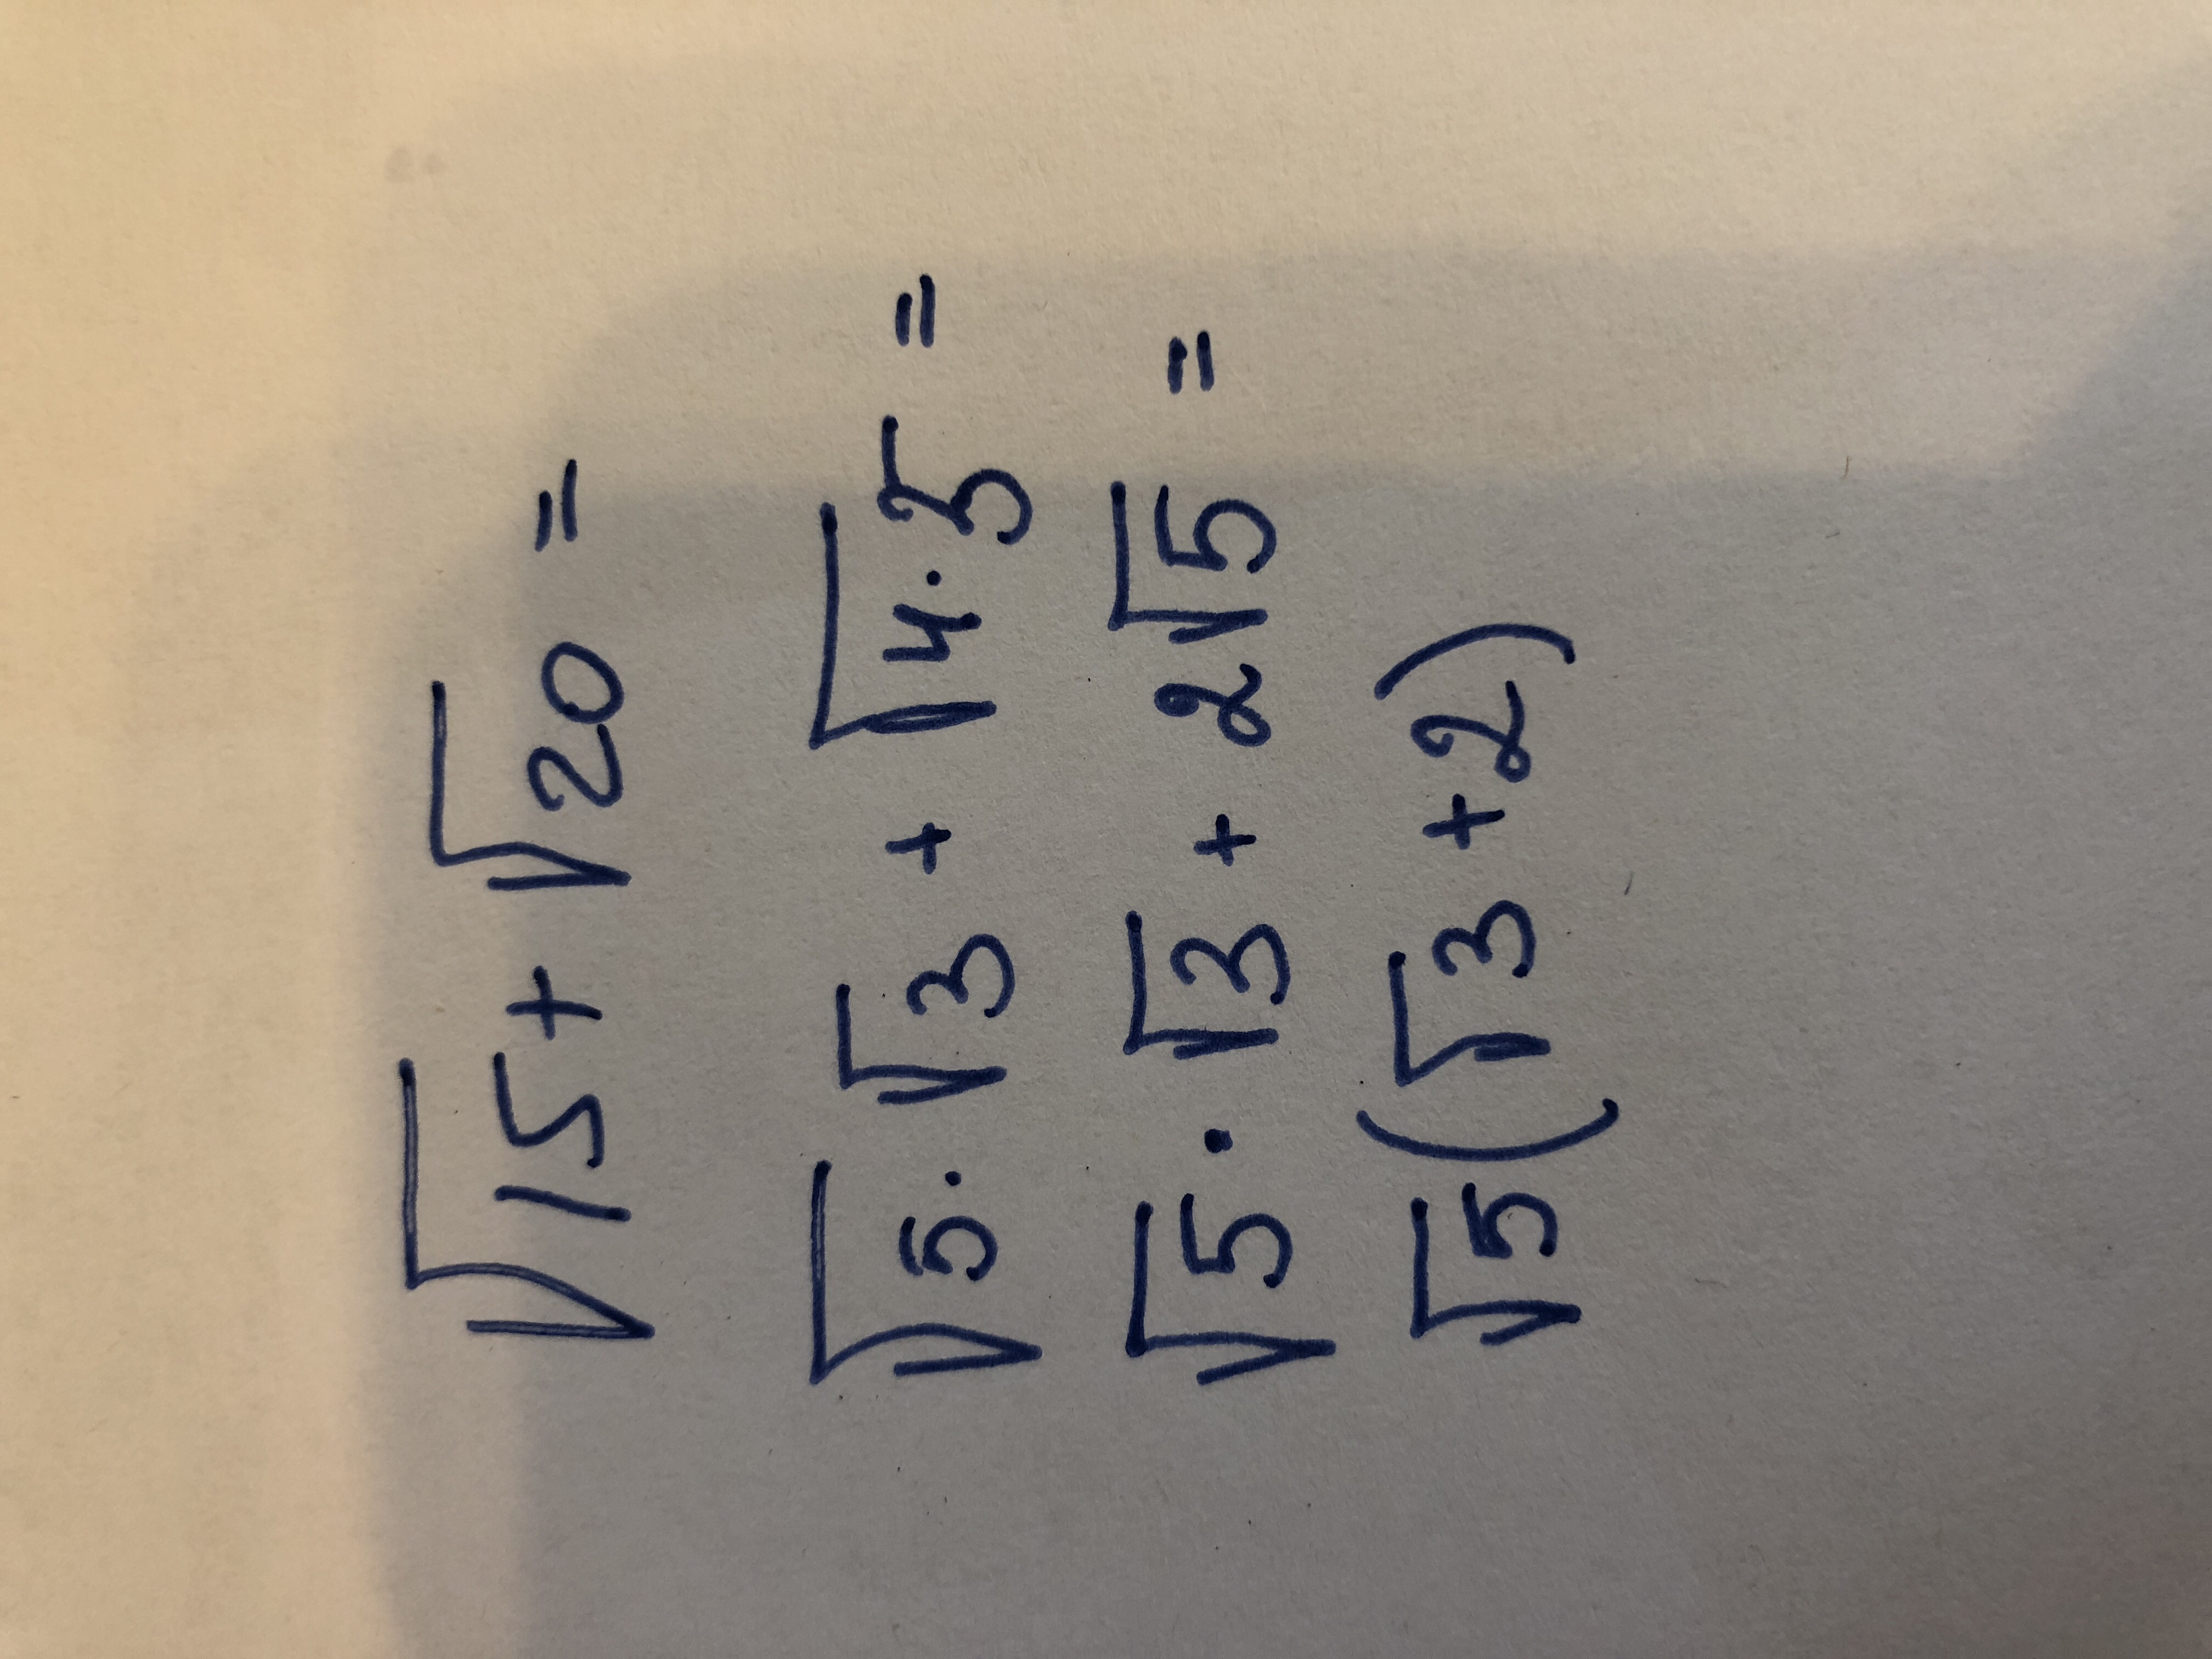 √15 + √20 =
√5 · √3 + √4 · 5 =
√5 · √3 + 2√5 =
√5 (√3 + 2)